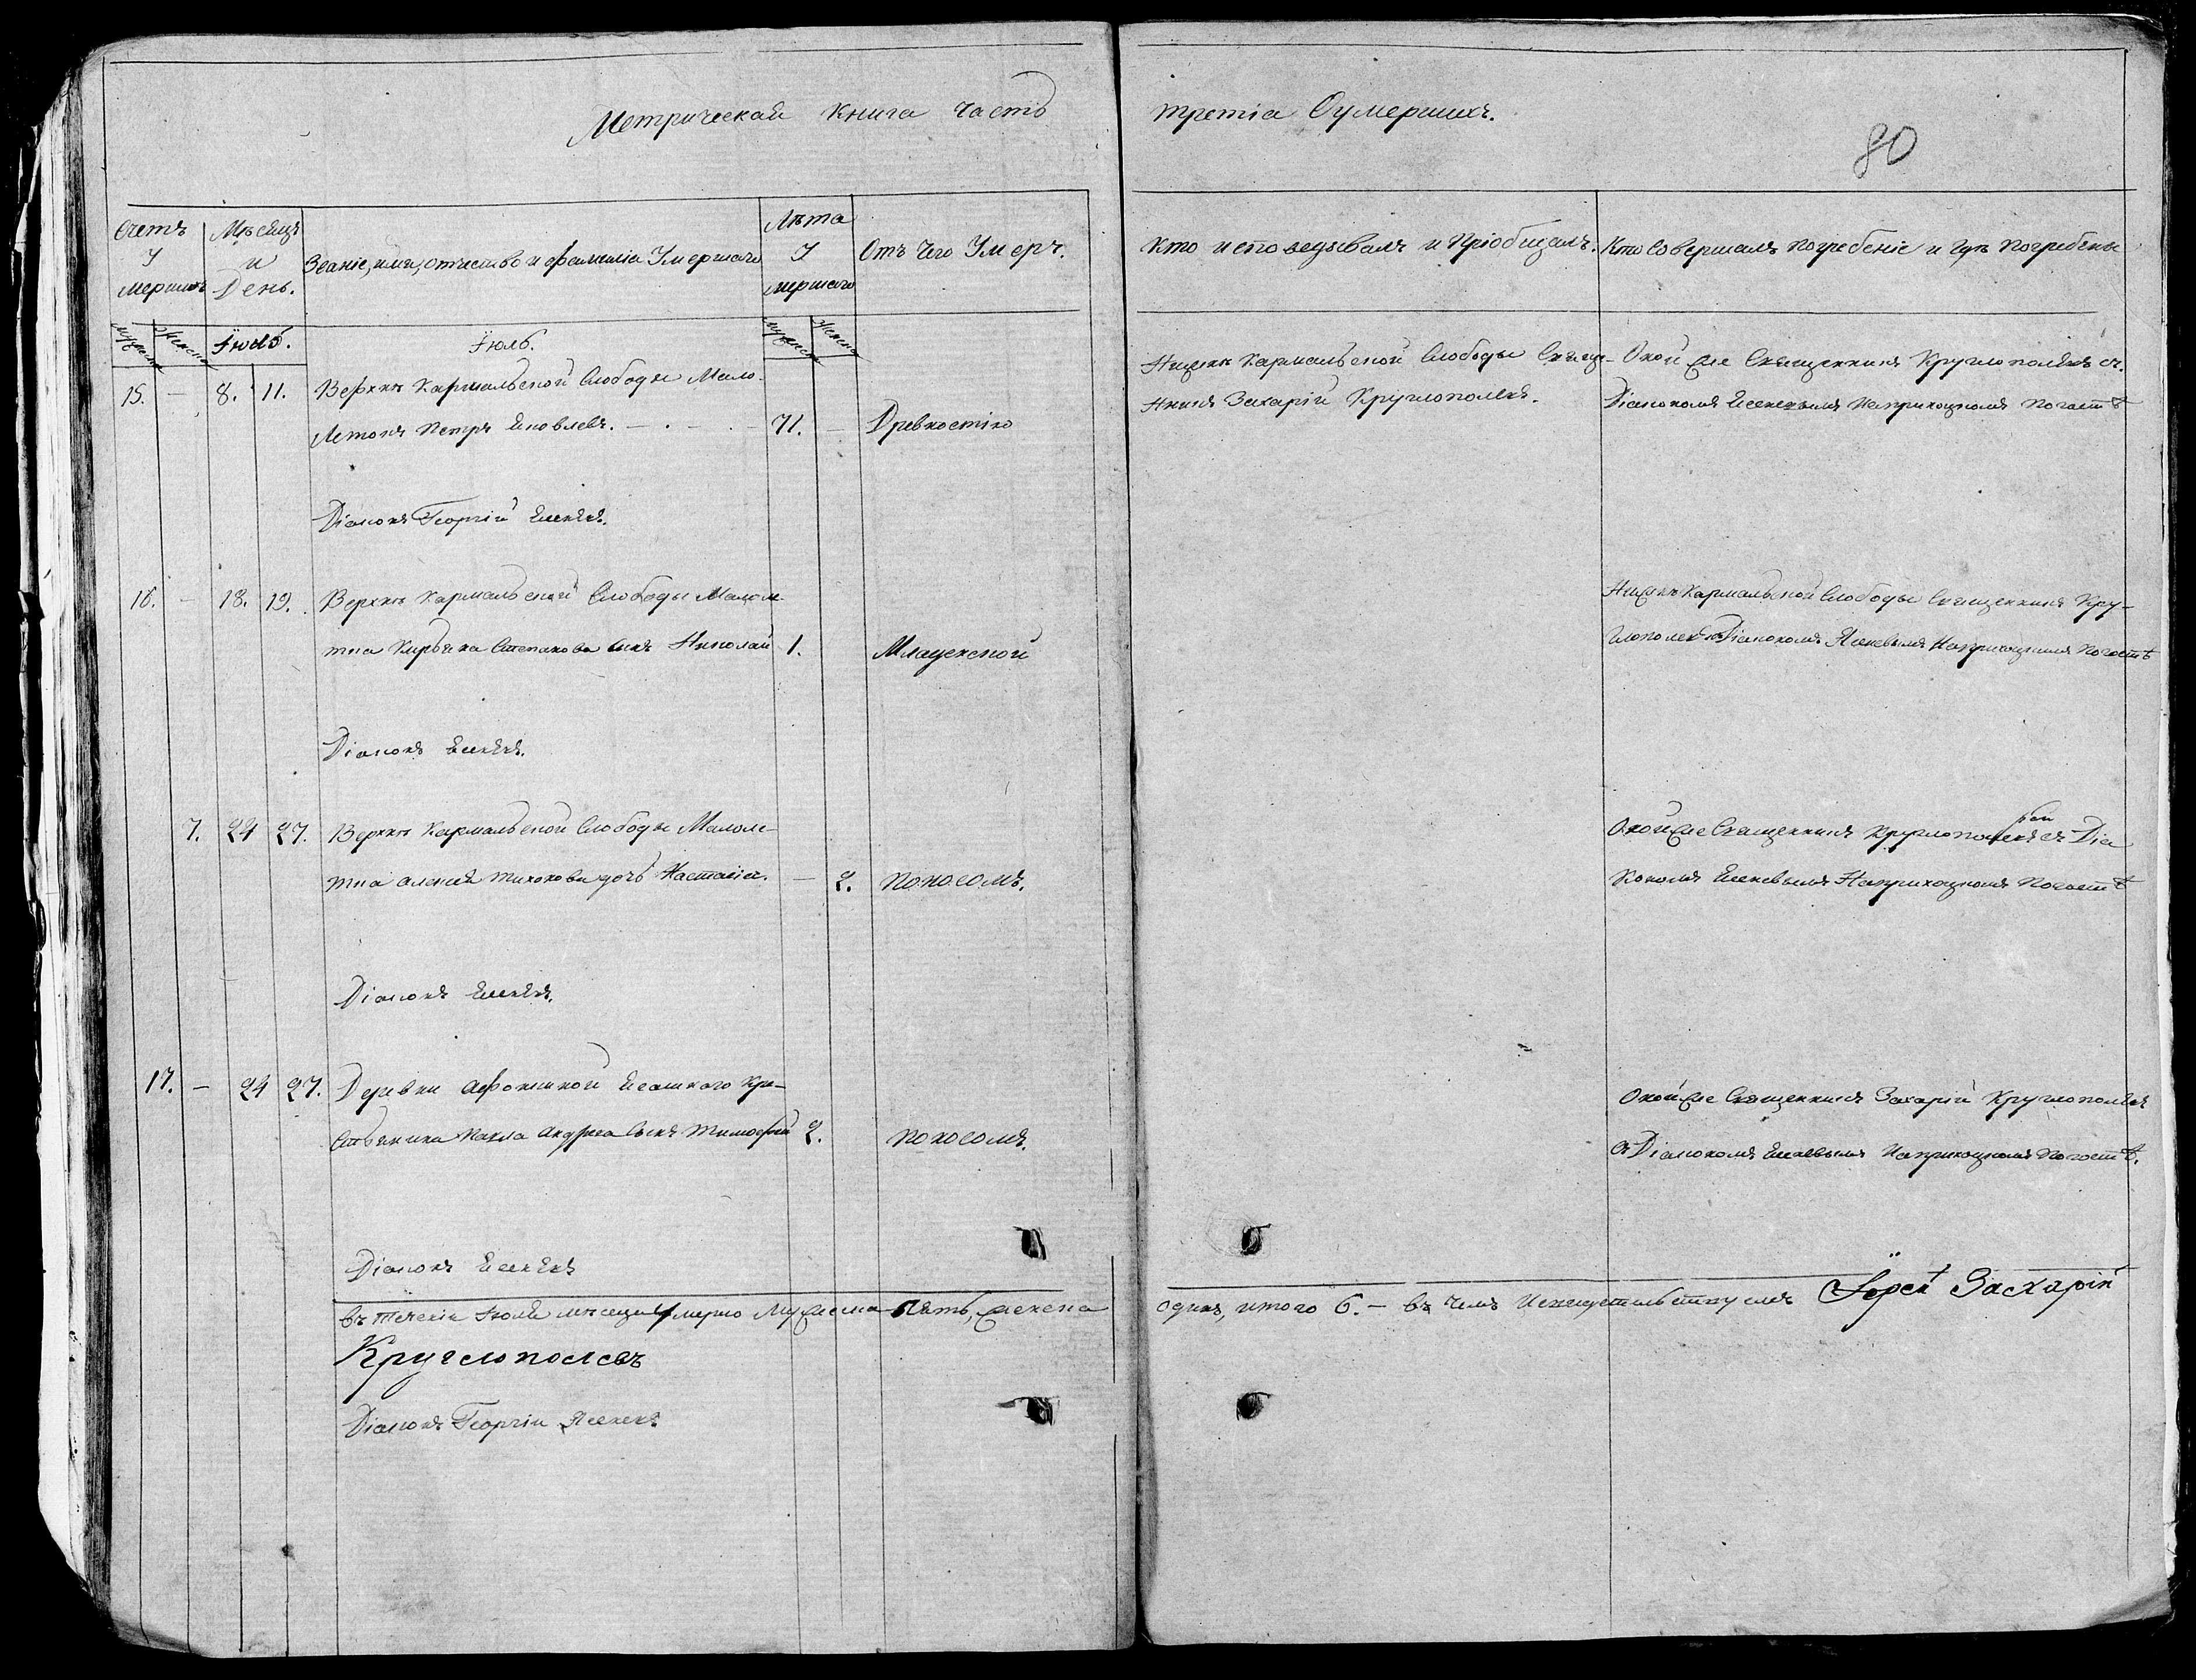 Метрическая книга часть
третіа Оумершихъ.
80
Счетъ
У
мершихъ
Мѣсяцъ
и
День.
Званіе, имя, отчество и фамиліа Умершаго
Лѣта
У
мершаго
Отъ чего Умеръ.
Кто исповедывалъ и Пріобщалъ.
Кто Совершалъ погребеніе и Гдѣ Погребены
мужеска
женска
Іюль.
Іюль.
мужеска
женска
15. — 8. 11. Верхнѣ Кармальской Слободы Мало-
Летокъ Петръ Яковлевъ. — . — . — 71. — Древностію
Нижнѣ Кармальской Слободы Свящ-
нникъ Захарій Круглополевъ.
Оной же Священникъ Круглополевъ съ
Діакономъ Ясеневымъ Наприходкомъ погостѣ
Діаконъ Георгій Ясеневъ.
16. — 18. 19. Верхнѣ Кармальской Слободы Малом-
тка Степанова сынъ Николай 1. Младенской
Нижнѣ Кармальской Слободы Священникъ Кру-
глополевъ съ Діакономъ Ясеневымъ Наприходкомъ Погостѣ
Діаконъ Ясеневъ.
7. 24 27. Верхнѣ Кармальской Слободы Малоле-
тка Алексея Тихонова дочь Настасіа. — 2. поносомъ.
Оной же Священникъ Круглополевъ съ Діа
кономъ Ясеневымъ Наприходкомъ Погостѣ
Діаконъ Ясеневъ.
17. — 24 27. Деревни Афонькиной Ясашкаго Кре-
стьянина Павла Андреева Сынъ Тимофей 2. поносомъ.
Оной же Священникъ Захарій Круглополевъ
съ Діакономъ Ясеневымъ Наприходкомъ Погостѣ.
Діаконъ Ясеневъ
въ теченіи Іюля месеца Умерло Мужеска Пять, женска
одна, итого 6. — въ чемъ Исвидетельствуемъ Іерей Захарій
Круглополевъ
Діаконъ Георгіи Ясеневъ